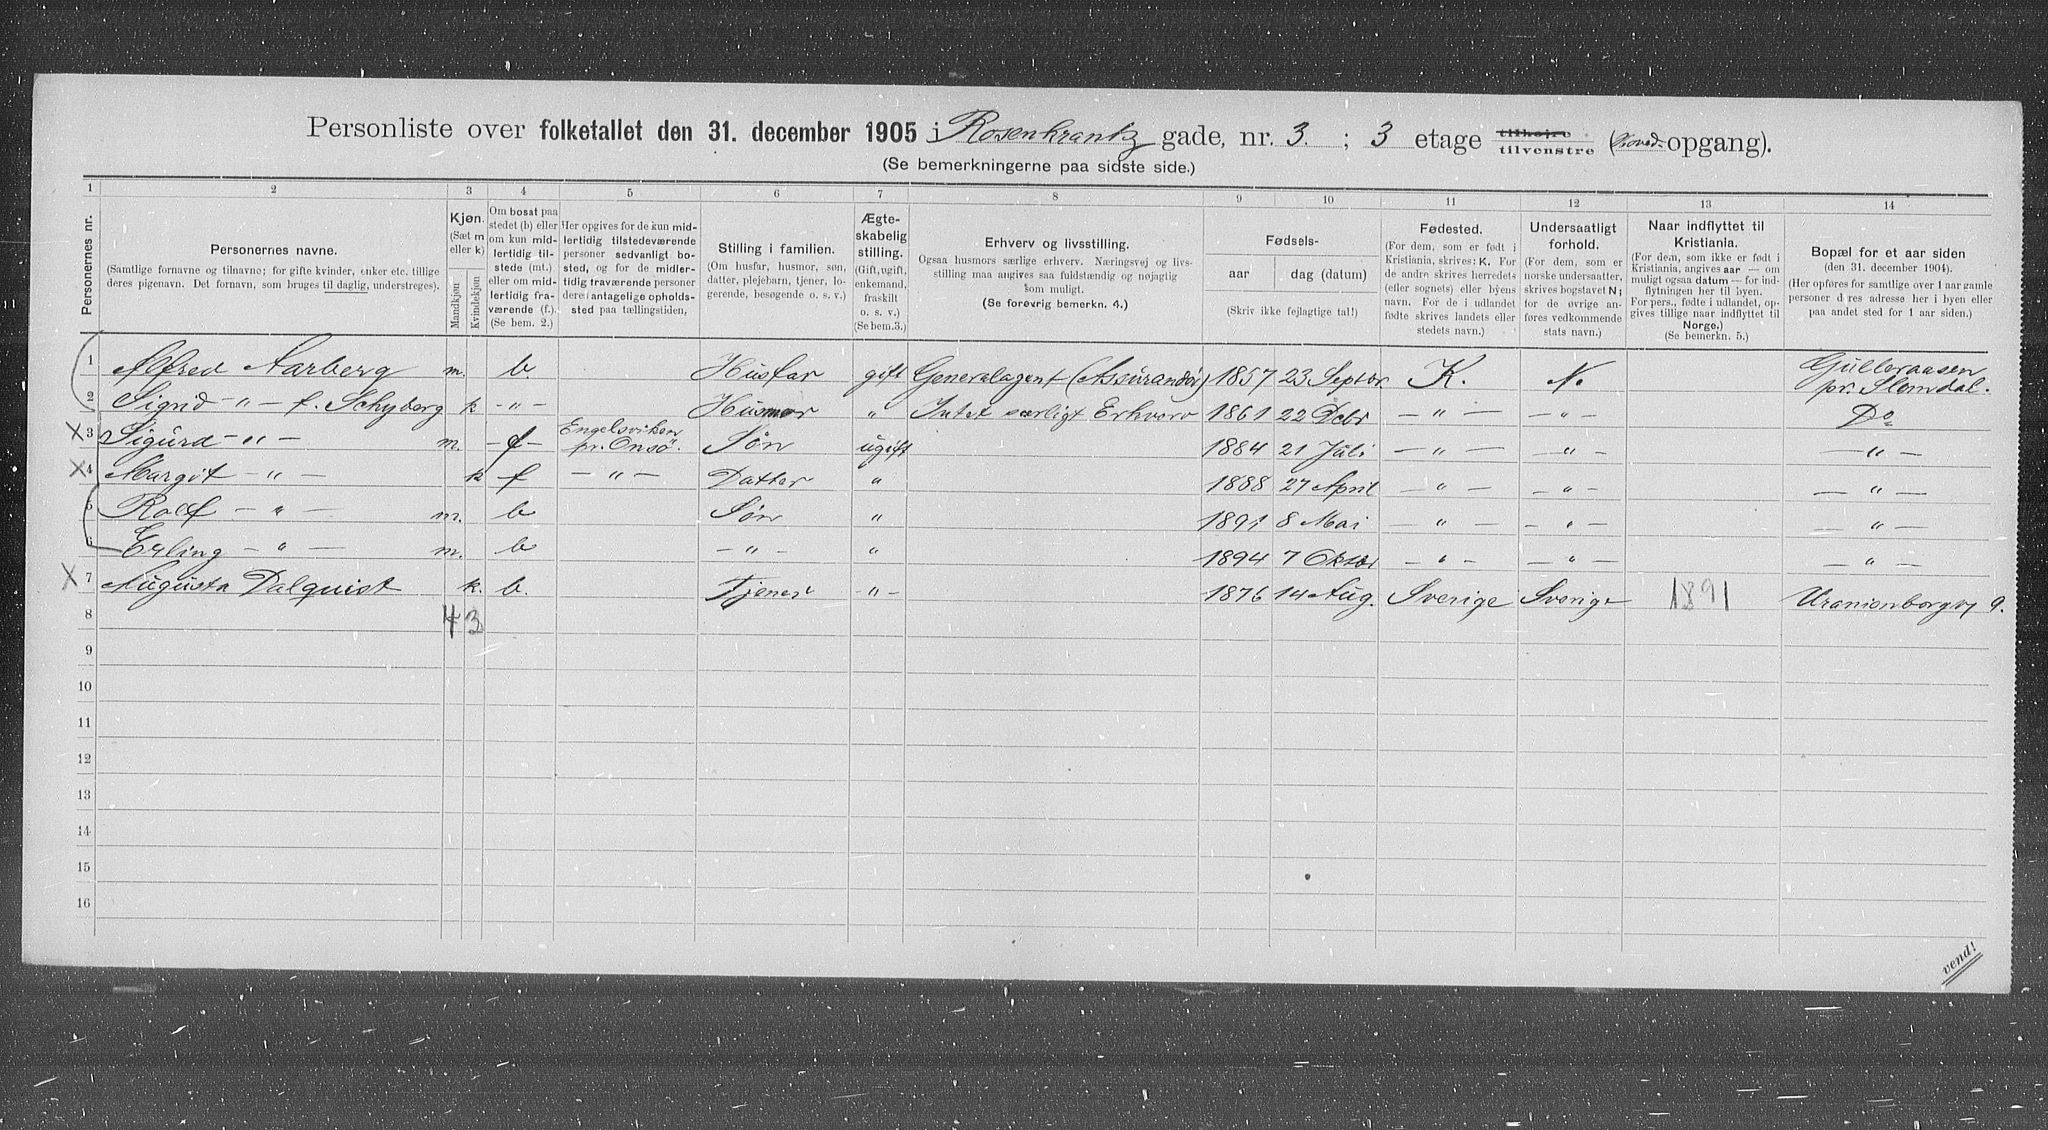 Personliste over folketallet den 31. december 1905 i Rosenkrantz gade, nr. 3. ; 3 etage tilhøjre tilvenstre (Hoved-opgang).
(Se bemerkningerne paa sidste side.)
1 2 3 4 5 6 7 8 9 10 11 12 13 14
Personernes nr.
Personernes navne.
(Samtlige fornavne og tilnavne; for gifte kvinder, enker etc. tillige
deres pigenavn. Det fornavn, som bruges til daglig, understreges).
Kjøn.
(Sæt m
eller k)
Mandkjøn
Kvindekjøn
Om bosat paa
stedet (b) eller
om kun mid-
lertidig til-
stede (mt.)
eller om mid-
lertidig fra-
værende (f.).
(Se bem. 2.)
Her opgives for de kun mid-
lertidig tilstedeværende
personer sedvanligt bo-
sted, og for de midler-
tidig fraværende personer
deres antagelige opholds-
sted paa tællingstiden.
Stilling i familien.
(Om husfar, husmor, søn,
datter, plejebarn, tjener, lo-
gerende, besøgende o. s. v.)
Ægte-
skabelig
stilling.
(Gift, ugift,
enkemand,
fraskilt
o. s. v.)
(Se bem. 3.)
Erhverv og livsstilling.
Ogsaa husmors særlige erhverv. Næringsvej og livs-
stilling maa angives saa fuldstændig og nøjagtig
som muligt.
(Se forøvrig bemerkn. 4.)
Fødsels-
aar dag (datum)
(Skriv ikke fejlagtige tal!)
Fødested.
(For dem, som er født i
Kristiania, skrives: K. For
de andre skrives herredets
(eller sognets) eller byens
navn. For de i udlandet
fødte skrives landets eller
stedets navn.)
Undersaatligt
forhold.
(For dem, som er
norske undersaatter,
skrives bogstavet N;
for de øvrige an-
føres vedkommende
stats navn.)
Naar indflyttet til
Kristiania.
(For dem, som ikke er født i
Kristiania, angives aar — om
muligt ogsaa datum — for ind-
flytningen her til byen.
For pers., fødte i udlandet, op-
gives tillige naar indflyttet til
Norge.)
(Se bemerkn. 5.)
Bopæl for et aar siden
(den 31. december 1904.)
(Her opføres for samtlige over 1 aar gamle
personer deres adresse her i byen eller
paa andet sted for 1 aar siden.)
1 Alfred Aarberg m. b. Husfar gift Generalagent (Assurandør) 1857 23 Septbr K. N. Gulleraasen pr. Slemdal.
2 Sigrid - " - f. Schyberg k - " - Husmor " Intet særligt Erhverv 1861 22 Debr - " - - " - Do
X 3 Sigurd - " - m. - f - Engelsviken pr. Onsø. Søn ugift 1884 21 Juli - " - - " - - " -
X 4 Margit - " - k f - " - Datter " 1888 27 April - " - - " - - " -
5 Rolf - " - m. b Søn " 1891 8 Mai - " - - " - - " -
6 Erling - " - m. b - " - " 1894 7 Oktbr - " - - " - - " -
X 7 Augusta Dalquist k. b. Tjener - " - 1876 14 Aug. Sverige Sverige 1891 Uranienborgvj 9.
8 4 3
9
10
11
12
13
14
15
16
vend!